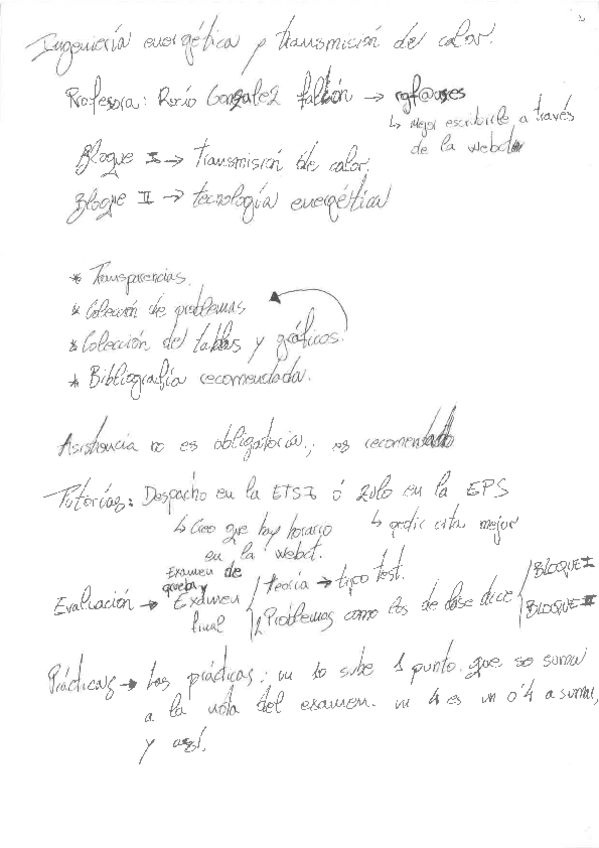 Ingeniería energética y transmisión de calor.
Profesora: Rocío González Falcón → rgf@us.es
↳ Mejor escribirle a través
de la webct
Bloque I → Transmisión de calor.
Bloque II → tecnología energética
* Transparencias.
* Colección de problemas
* Colección de tablas y gráficos.
* Bibliografía recomendada.
Asistencia no es obligatoria, es recomendado
Tutorías: Despacho en la ETSI ó 2010 en la EPS
↳ Creo que hay horario ↳ pedir cita mejor
en la webct.
Examen de
prueba y
Evaluación → Examen Teoría → tipo test. BLOQUE I
final 2 Problemas como los de clase dice BLOQUE II
Prácticas → Las prácticas: un 10 sube 1 punto que se suma
a la nota del examen. un 4 es un 0'4 a sumar,
y así.